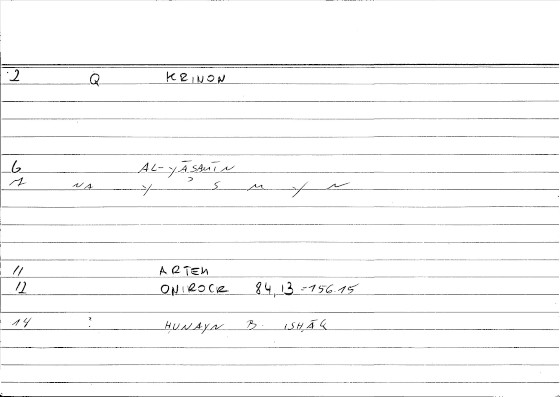 2 Q KRINON
6 AL-YĀSAMĪN
7 NA Y ʾ S M Y N
11 ARTEM
12 ONIROCR 84,13 = 156.15
14 : HUNAYN B. ISḤĀQ